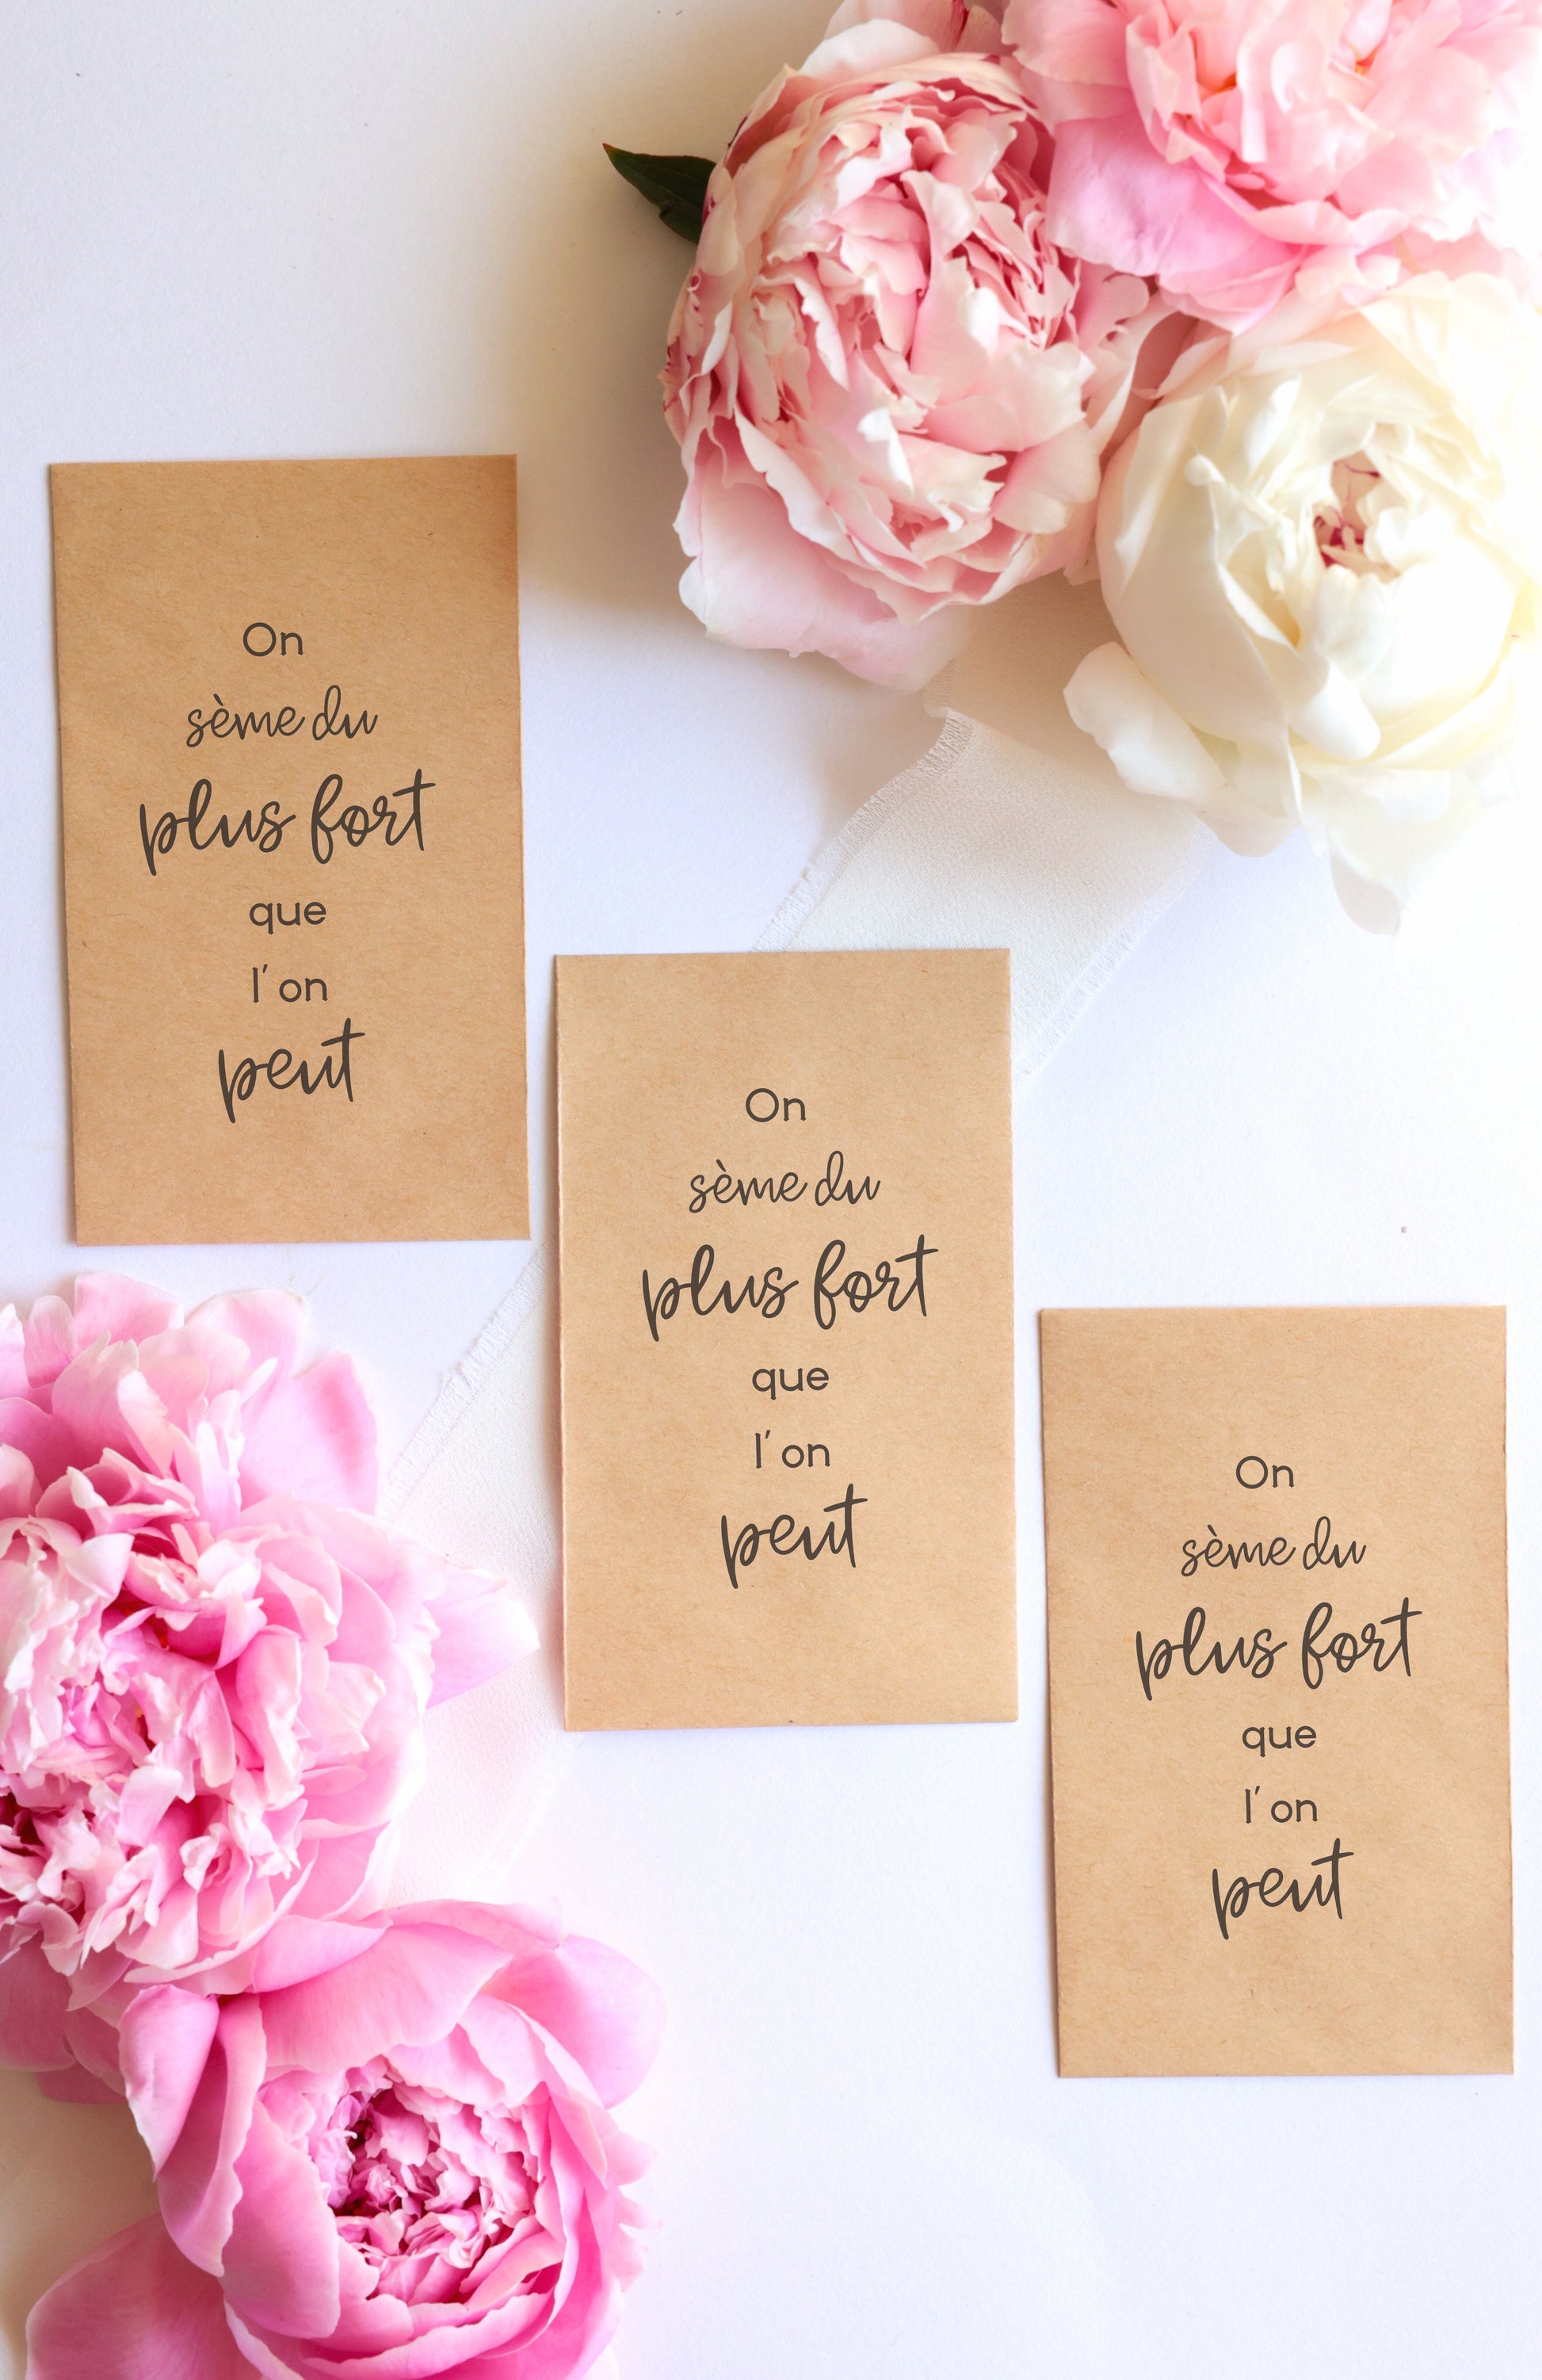 On
sème du
plus fort
que
l'on
peut
On
sème du
plus fort
que
l'on
peut
On
sème du
plus fort
que
l'on
peut